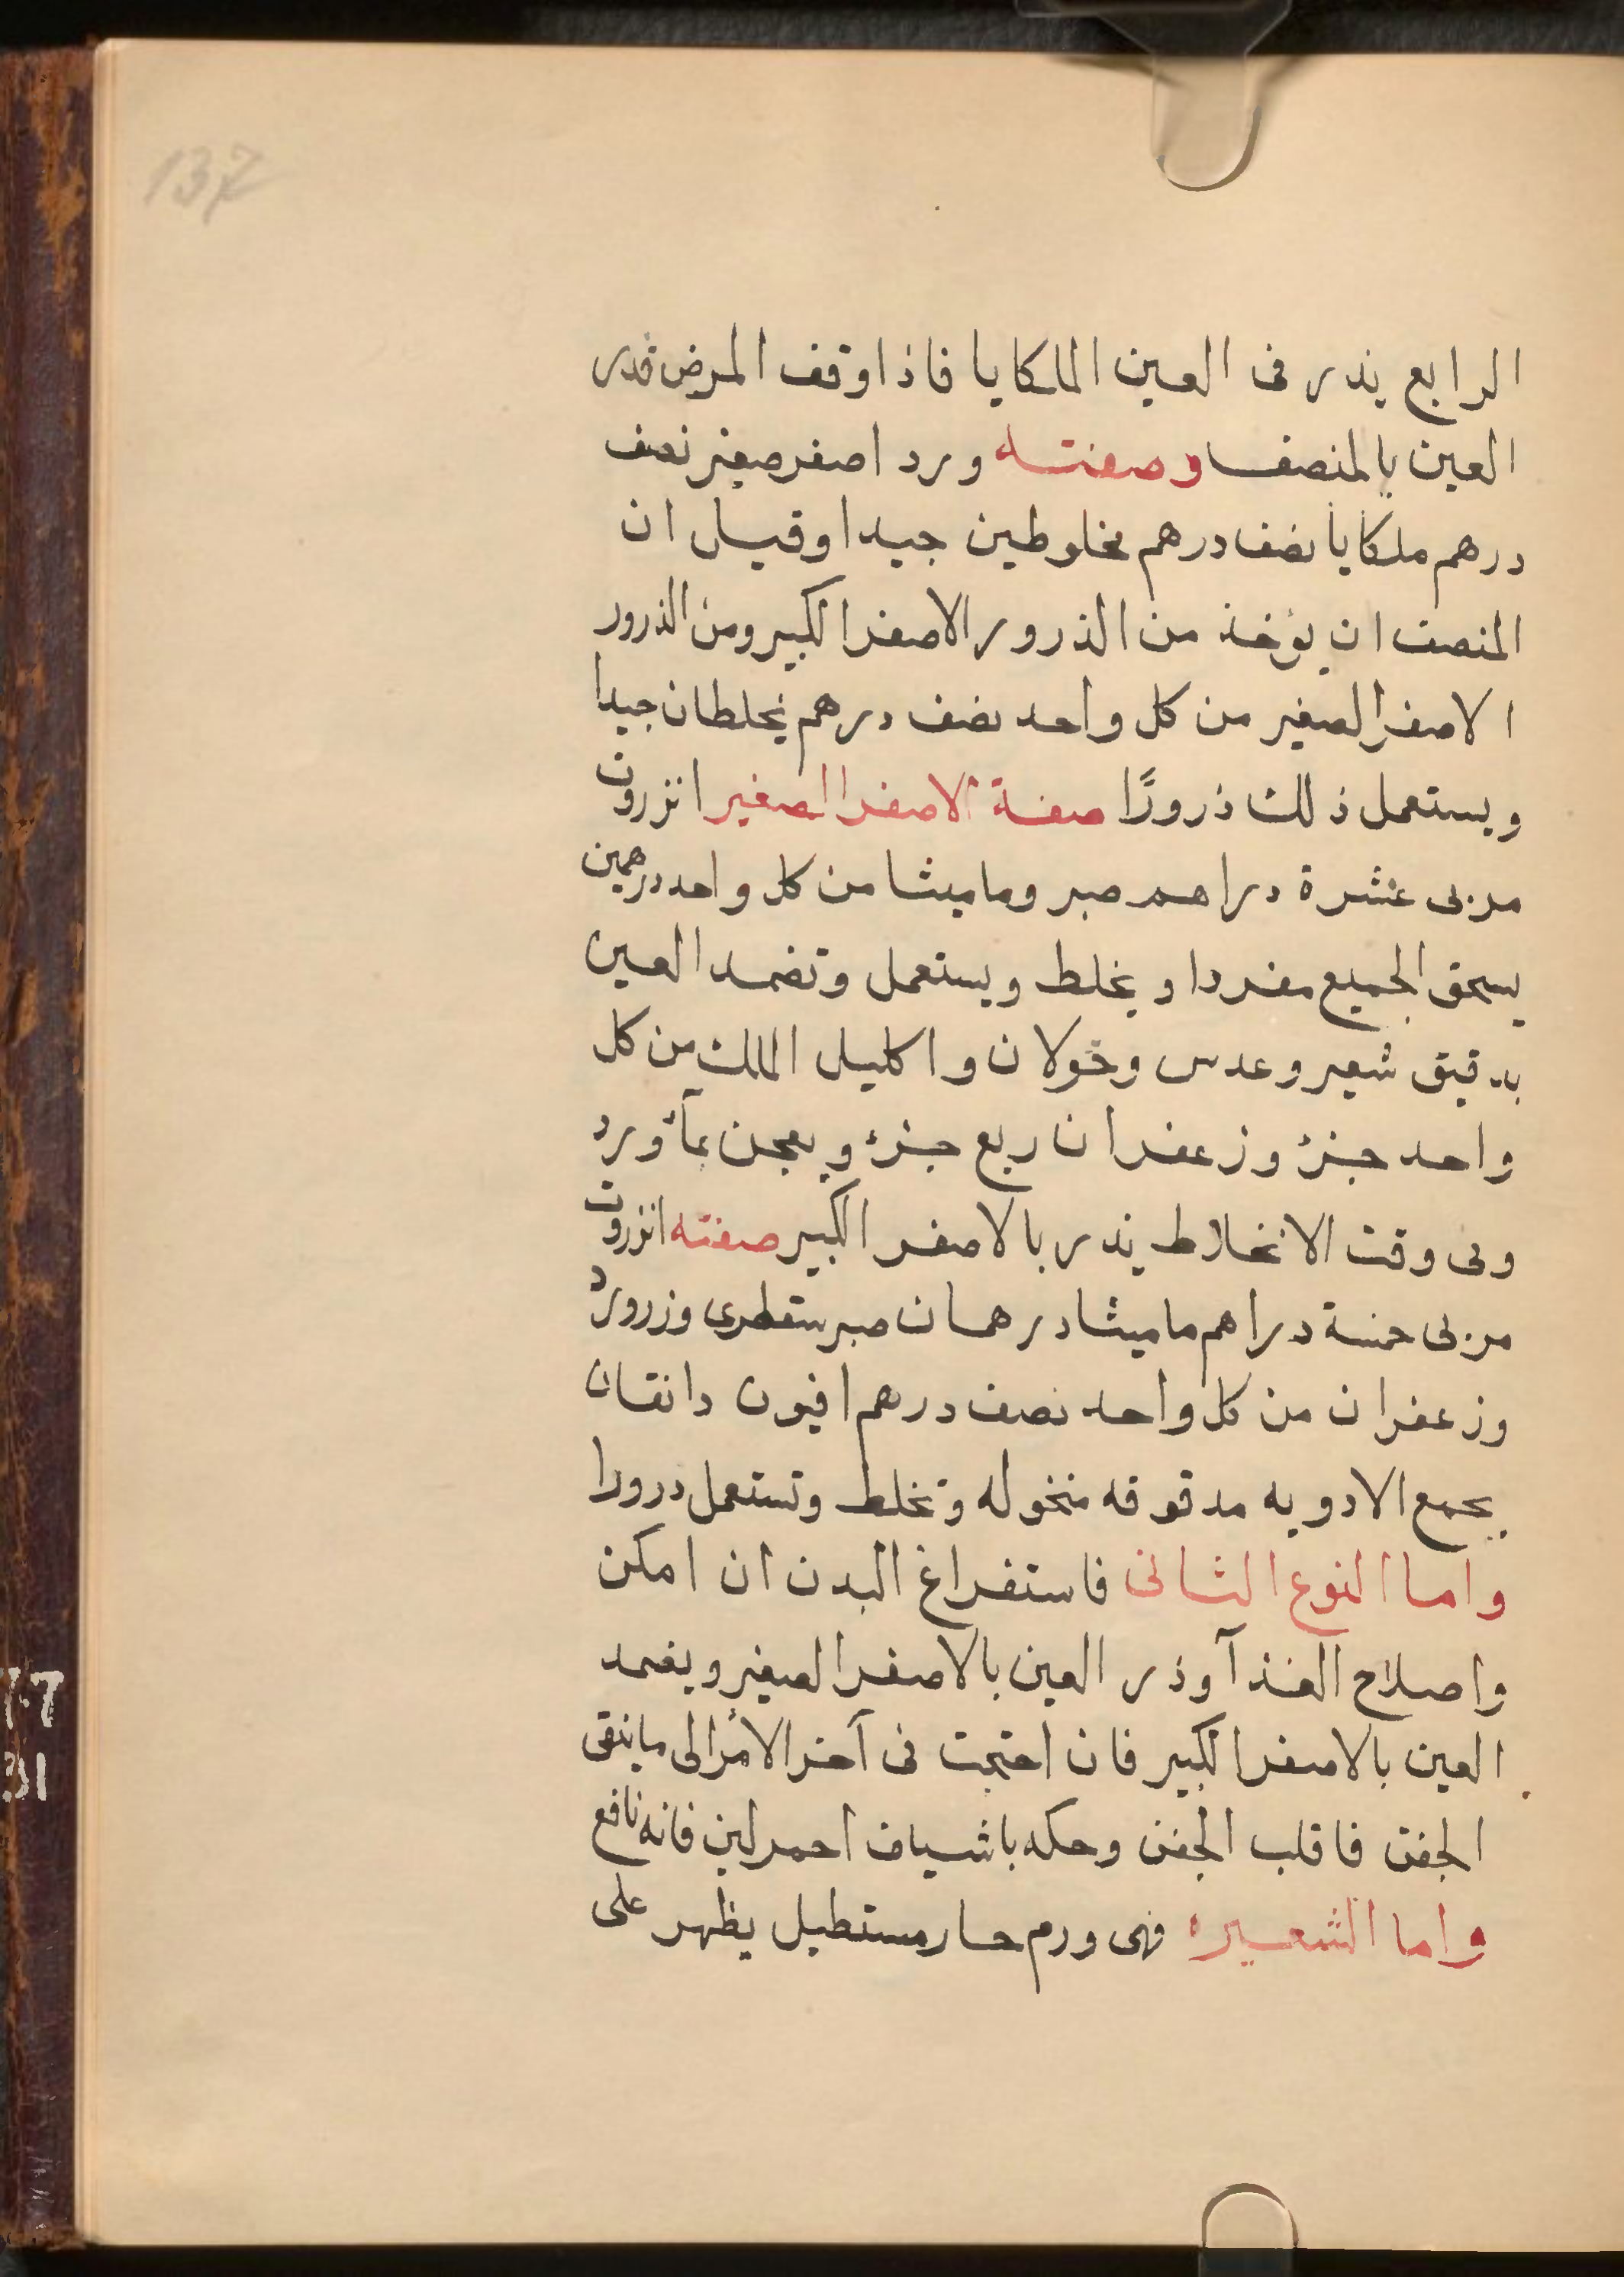 137
الرابع يذر فى العين الملكايا فاذا وقف المرض فدر
العين بالمنصف وصفته ورد اصفر صغير نصف
درهم ملكايا نصف درهم مخلوطين جيدا وقيل ان
المنصف ان يؤخذ من الذرور الاصفر الكبير ومن الذرور
الاصفر الصغير من كل واحد نصف درهم يخلطان جيدا
ويستعمل ذلك ذرورًا صفة الاصفر الصغير انزروت
مربى عشرة دراهم صبر وماميثا من كل واحد درهمين
يسحق الجميع مفردا ويخلط ويستعمل وتضمد العين
بدقيق شعير وعدس وخولان واكليل الملك من كل
واحد جزؤ وزعفران ربع جزؤ ويعجن بمأورد
وفى وقت الانخلاط يذر بالاصفر الكبير صفته انزروت
مربى خمسة دراهم ماميثا درهمان صبر سقطرى وزرورد
وزعفران من كل واحد نصف درهم افيون دانقان
يجمع الادويه مدقوقه منخوله وتخلط وتستعمل درورا
واما النوع الثانى فاستفراغ البدن ان امكن
واصلاح الغذآ وذر العين بالاصفر الصغير ويضمد
العين بالاصفر الكبير فان احتجت فى آخر الأمر الى ماينقى
الجفن فاقلب الجفن وحكه باشياف احمر لين فانه نافع
واما الشعيره فهى ورم حار مستطيل يظهر على